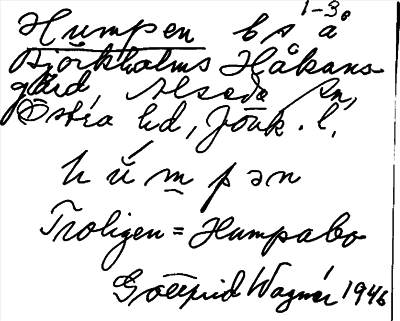 Humpen bs å 1-3.
Björkholms Håkans-
gård, Alseda sn,
Östra hd, Jönk. l.
húmpən
Troligen = Humpabo
Gottfrid Wagnér 1946